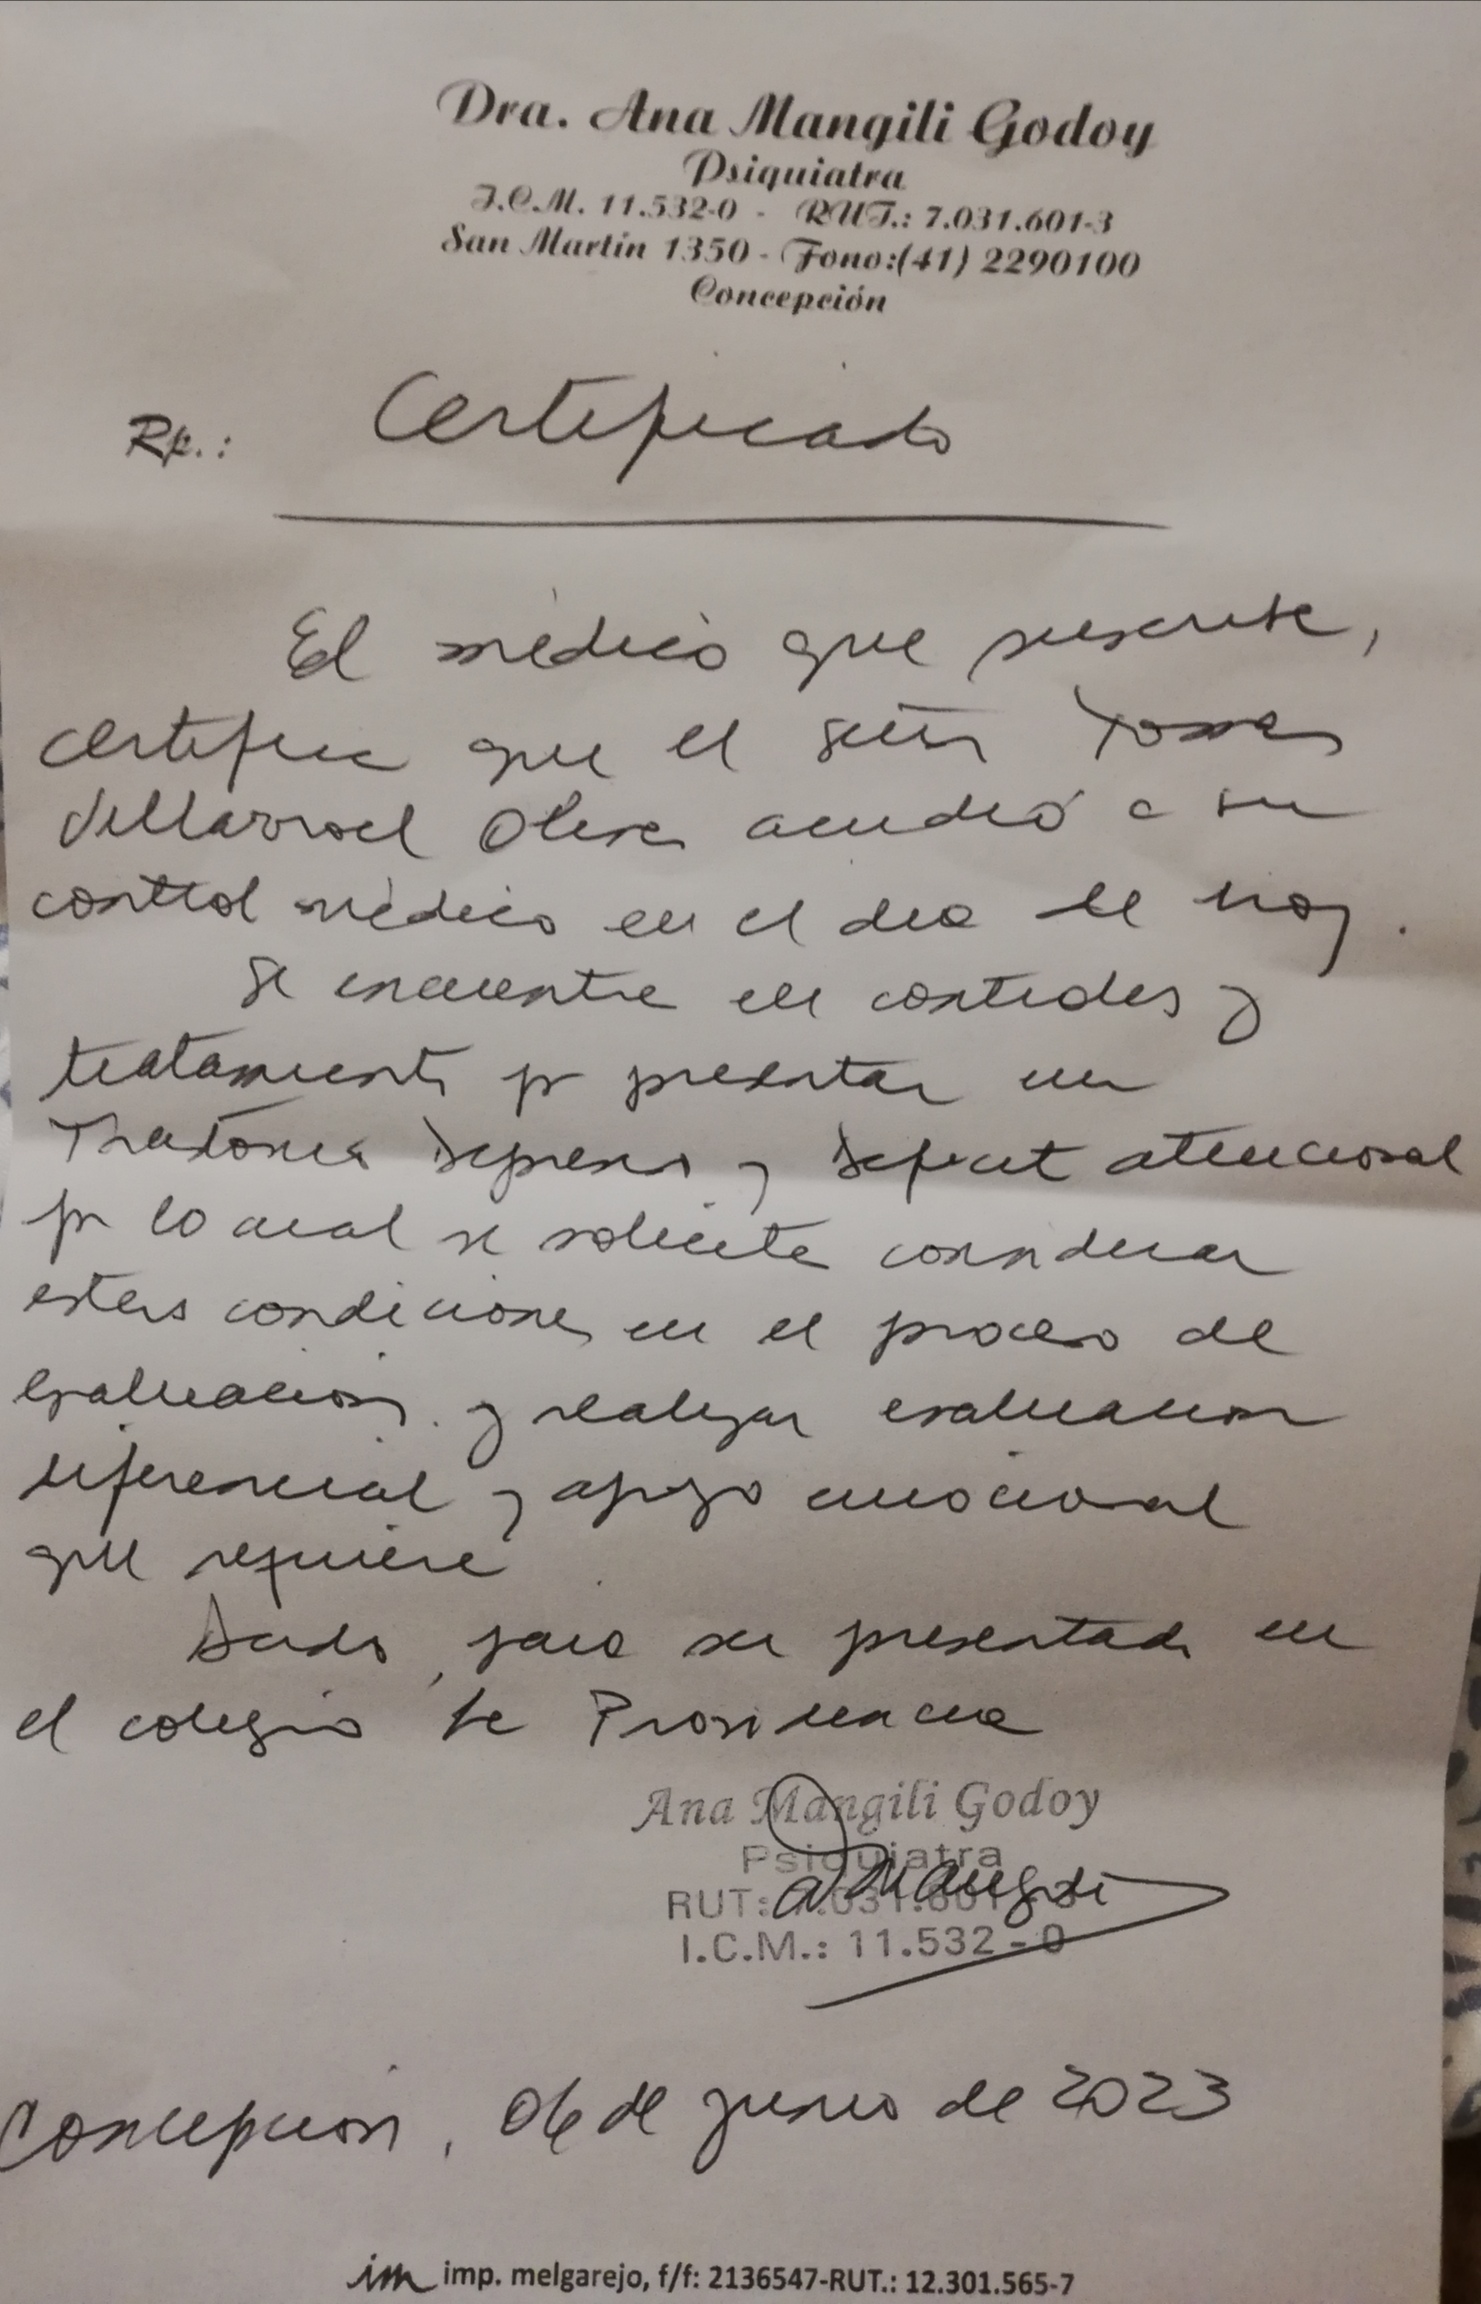 Dra. Ana Mangili Godoy
Psiquiatra
I.C.M. 11.532-0 - RUT.: 7.031.601-3
San Martín 1350 - Fono:(41) 2290100
Concepción
Rp.: Certificado
El médico que suscribe,
certifica que el señor Tomas
Villarroel acudió a su
control médico en el dia de hoy.
Se encuentra en controles y
tratamiento pr presentar un
Trastorno Depresivo y Deficit atencional
pr lo cual se solicita considerar
estas condiciones en el proceso de
evaluacion y realizar evaluacion
diferencial y apoyo emocional
que requiere
Dado, para ser presentado en
el colegio de Providencia
Ana Mangili Godoy
Psiquiatra
RUT: 7.031.601-3
AMangili
I.C.M.: 11.532 - 0
Concepcion, 06 de junio de 2023
im imp. melgarejo, f/f: 2136547-RUT.: 12.301.565-7